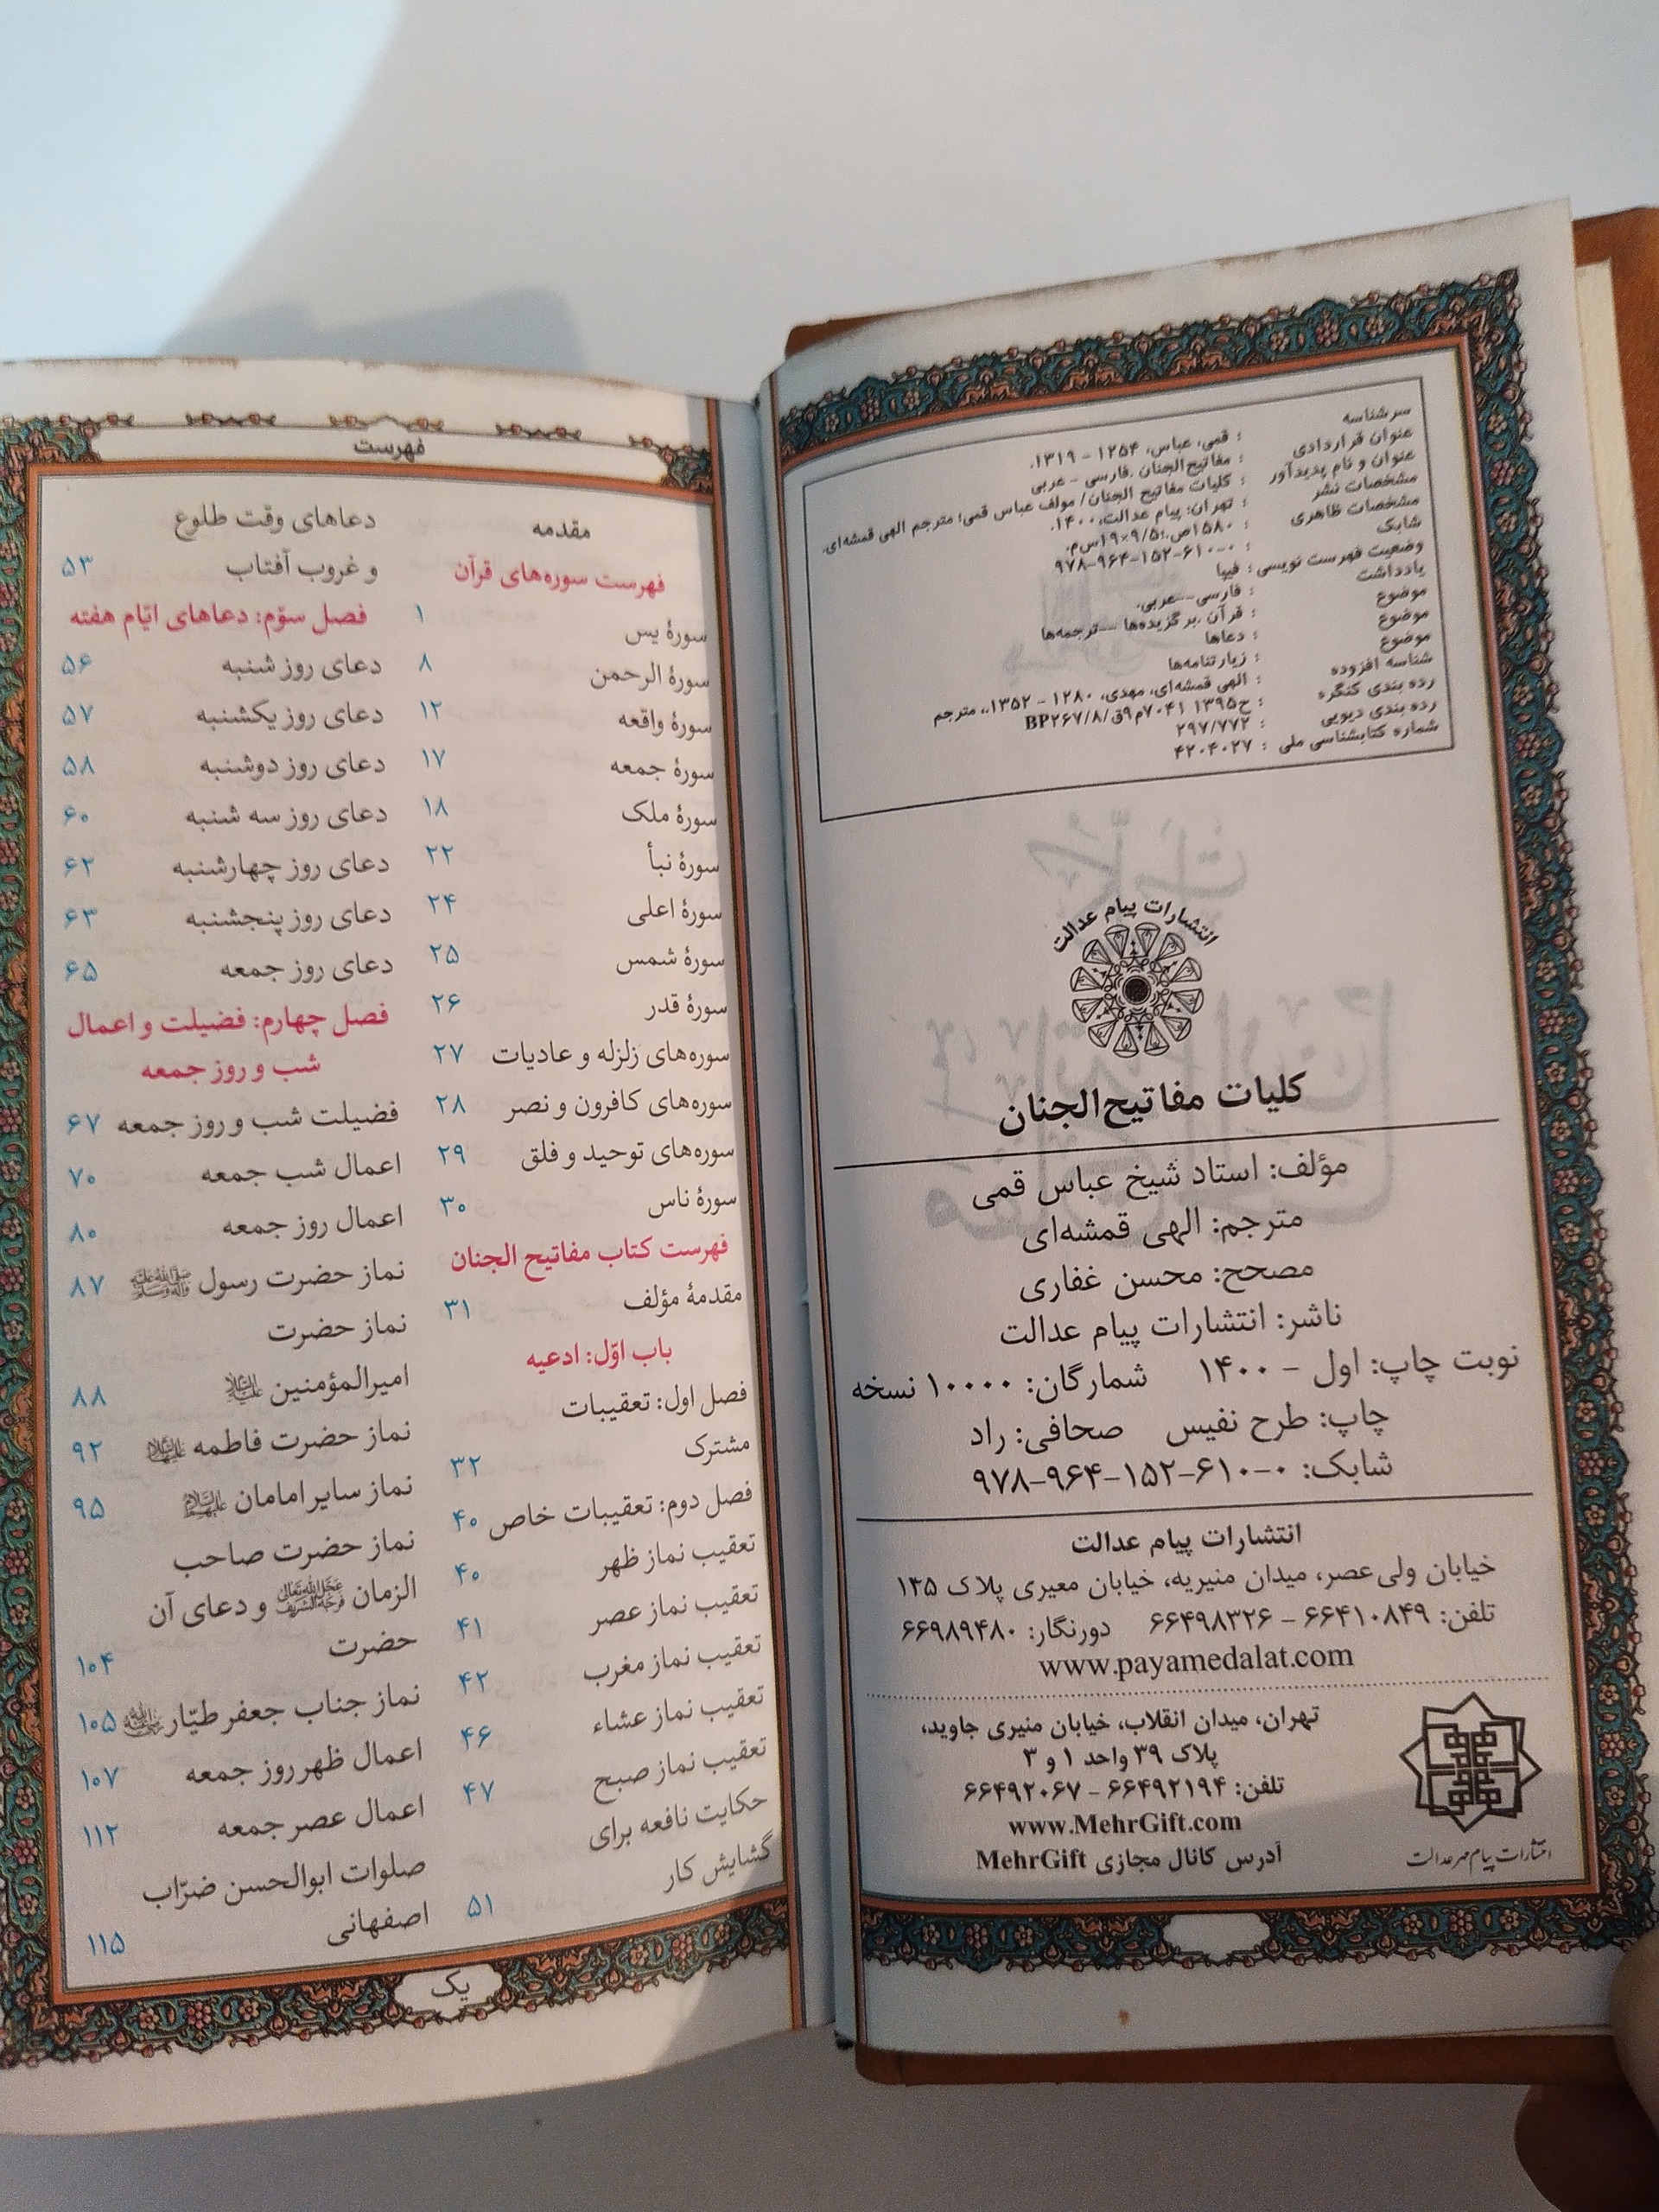 سرشناسه : قمی، عباس، ۱۲۵۴ - ۱۳۱۹.
عنوان قراردادی : مفاتیح‌الجنان .فارسی - عربی
عنوان و نام پدیدآور : کلیات مفاتیح الجنان/ مولف عباس قمی؛ مترجم الهی قمشه‌ای.
مشخصات نشر : تهران: پیام عدالت،۱۴۰۰.
مشخصات ظاهری : ۱۵۸۰ص.؛۹/۵×۱۹س‌م.
شابک : ۹۷۸-۹۶۴-۱۵۲-۶۱۰-۰
وضعیت فهرست نویسی : فیپا
یادداشت : فارسی--عربی.
موضوع : قرآن .برگزیده‌ها --ترجمه‌ها
موضوع : دعاها
موضوع : زیارتنامه‌ها
شناسه افزوده : الهی قمشه‌ای، مهدی، ۱۲۸۰ - ۱۳۵۲.، مترجم
رده بندی کنگره : BP۲۶۷/۸/ق۹م۷۰۴۱ ۱۳۹۵ح
رده بندی دیویی : ۲۹۷/۷۷۲
شماره کتابشناسی ملی : ۴۲۰۴۰۲۷
انتشارات پیام عدالت
کلیات مفاتیح‌الجنان
مؤلف: استاد شیخ عباس قمی
مترجم: الهی قمشه‌ای
مصحح: محسن غفاری
ناشر: انتشارات پیام عدالت
نوبت چاپ: اول - ۱۴۰۰ شمارگان: ۱۰۰۰۰ نسخه
چاپ: طرح نفیس صحافی: راد
شابک: ۰-۶۱۰-۱۵۲-۹۶۴-۹۷۸
انتشارات پیام عدالت
خیابان ولی‌عصر، میدان منیریه، خیابان معیری پلاک ۱۳۵
تلفن: ۶۶۴۱۰۸۴۹ - ۶۶۴۹۸۳۲۶ دورنگار: ۶۶۹۸۹۴۸۰
www.payamedalat.com
تهران، میدان انقلاب، خیابان منیری جاوید،
پلاک ۳۹ واحد ۱ و ۳
تلفن: ۶۶۴۹۲۱۹۴ - ۶۶۴۹۲۰۶۷
www.MehrGift.com
آدرس کانال مجازی MehrGift
انتشارات پیام مهر عدالت
فهرست
مقدمه
فهرست سوره‌های قرآن
سورهٔ یس ۱
سورهٔ الرحمن ۸
سورهٔ واقعه ۱۲
سورهٔ جمعه ۱۷
سورهٔ ملک ۱۸
سورهٔ نبأ ۲۲
سورهٔ اعلی ۲۴
سورهٔ شمس ۲۵
سورهٔ قدر ۲۶
سوره‌های زلزله و عادیات ۲۷
سوره‌های کافرون و نصر ۲۸
سوره‌های توحید و فلق ۲۹
سورهٔ ناس ۳۰
فهرست کتاب مفاتیح الجنان
مقدمهٔ مؤلف ۳۱
باب اوّل: ادعیه
فصل اول: تعقیبات
مشترک ۳۲
فصل دوم: تعقیبات خاص ۴۰
تعقیب نماز ظهر ۴۰
تعقیب نماز عصر ۴۱
تعقیب نماز مغرب ۴۲
تعقیب نماز عشاء ۴۶
تعقیب نماز صبح ۴۷
حکایت نافعه برای
گشایش کار ۵۱
دعاهای وقت طلوع
و غروب آفتاب ۵۳
فصل سوّم: دعاهای ایّام هفته
دعای روز شنبه ۵۶
دعای روز یکشنبه ۵۷
دعای روز دوشنبه ۵۸
دعای روز سه شنبه ۶۰
دعای روز چهارشنبه ۶۲
دعای روز پنجشنبه ۶۳
دعای روز جمعه ۶۵
فصل چهارم: فضیلت و اعمال
شب و روز جمعه
فضیلت شب و روز جمعه ۶۷
اعمال شب جمعه ۷۰
اعمال روز جمعه ۸۰
نماز حضرت رسول صلی الله علیه وآله وسلم ۸۷
نماز حضرت
امیرالمؤمنین علیه السلام ۸۸
نماز حضرت فاطمه علیها السلام ۹۲
نماز سایر امامان علیهم السلام ۹۵
نماز حضرت صاحب
الزمان عجل الله تعالی فرجه الشریف و دعای آن
حضرت ۱۰۴
نماز جناب جعفر طیّار رضی الله عنه ۱۰۵
اعمال ظهر روز جمعه ۱۰۷
اعمال عصر جمعه ۱۱۲
صلوات ابوالحسن ضرّاب
اصفهانی ۱۱۵
یک